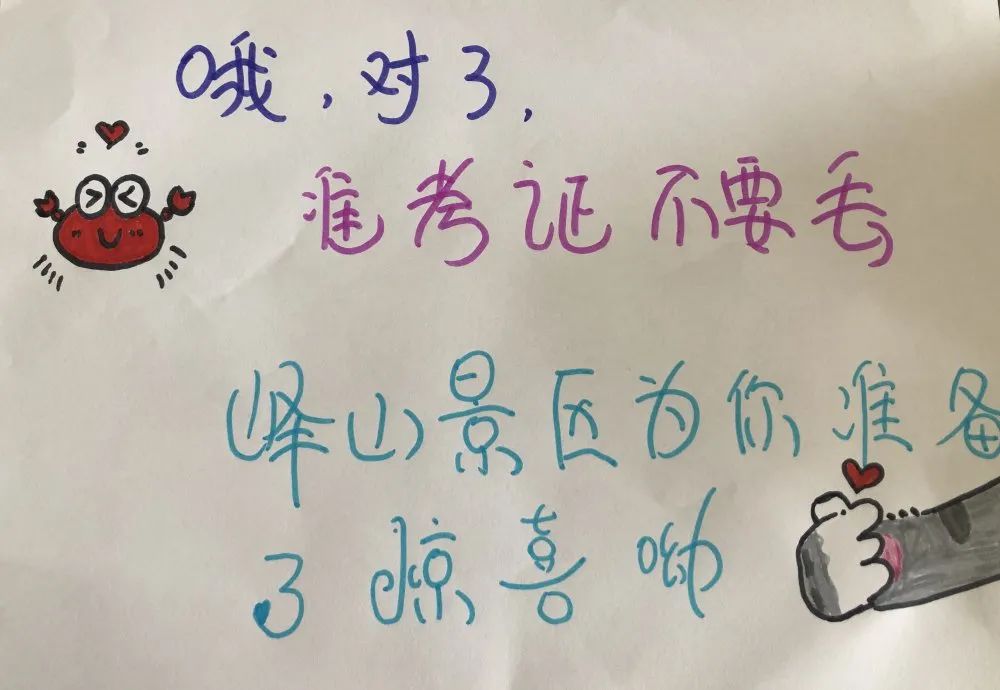 哦,对了,
准考证不要丢
峄山景区为你准备
了惊喜呦